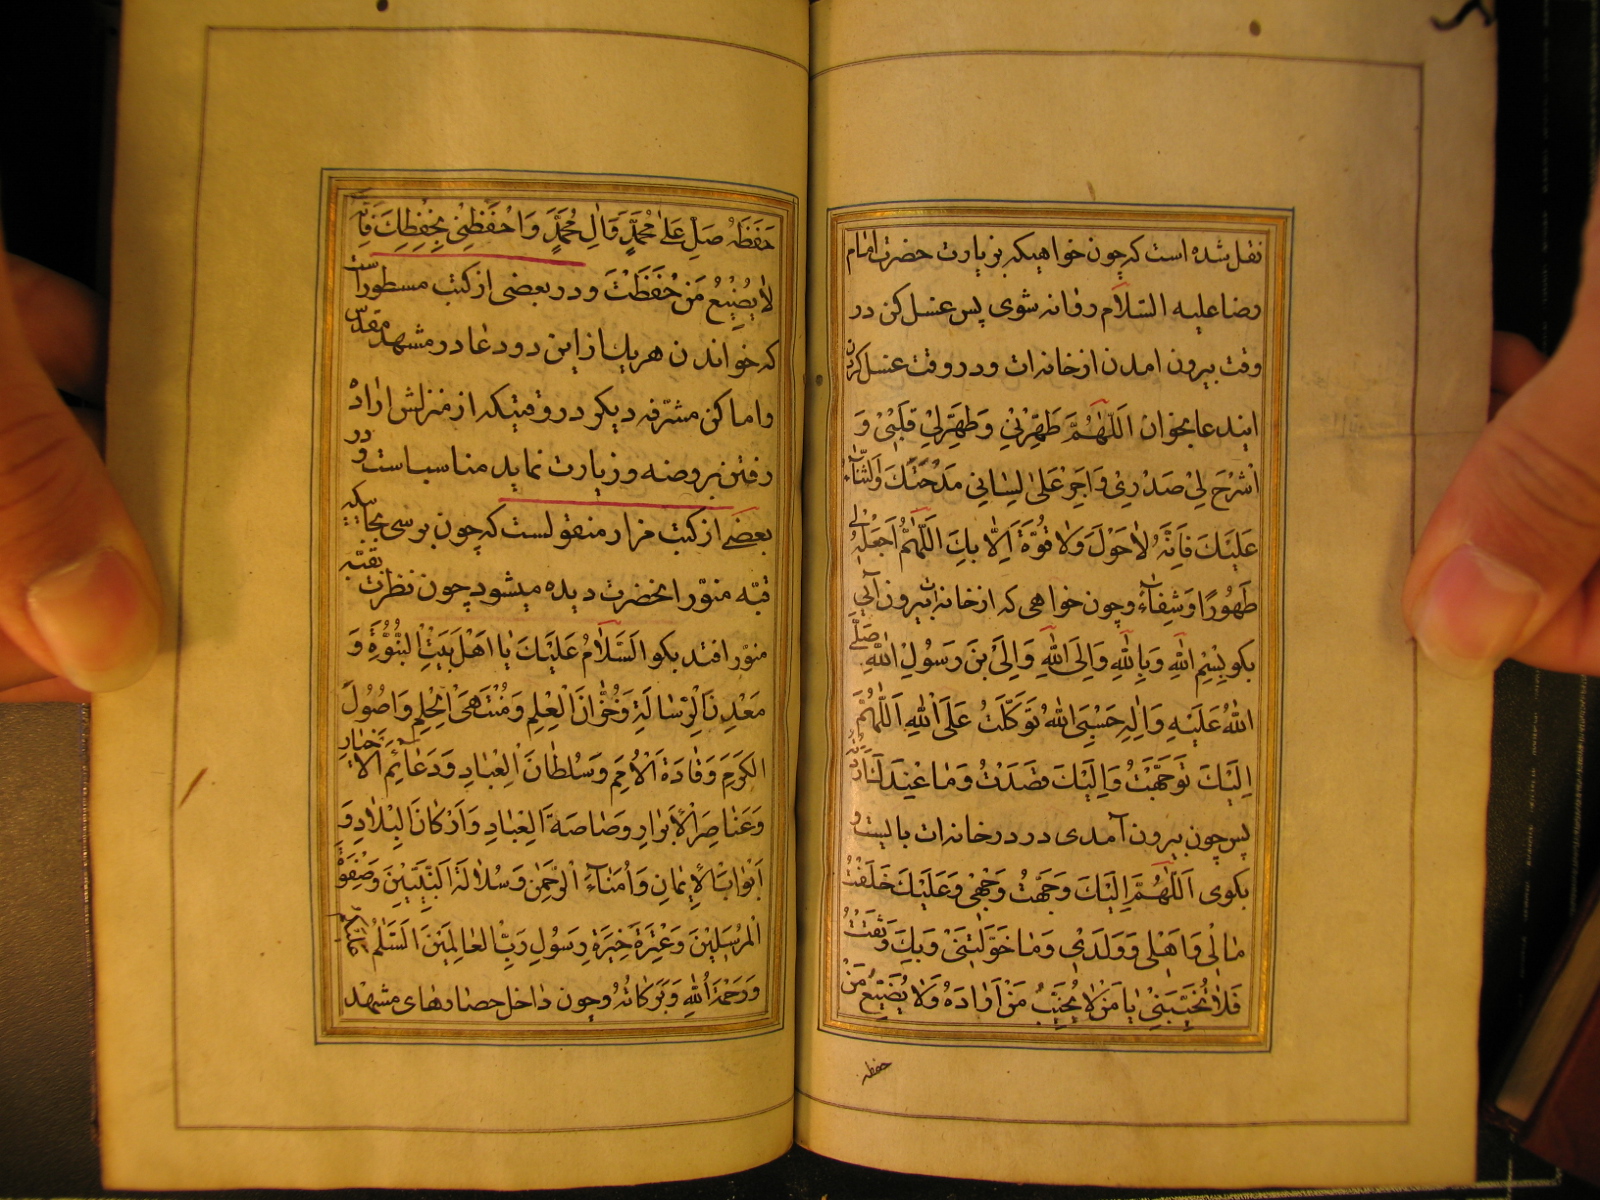 نقل شده است که چون خواهیکه بزیارت حضرت امام
رضا علیه السّلام روانه شوی پس غسل کن در
وقت بیرون امدن از خانه ات و در وقت غسل کردن
ایندعا بخوان اَللّٰهُمَّ طَهِّرْنِي وَطَهِّرْلِي قَلْبِیْ وَ
اشْرَحْ لِيْ صَدْرِيْ وَاَجْرِ عَلیٰ لِسَانِي مَدْحَتَكَ وَالثَّنَاءَ
عَلَیْكَ فَاِنَّهُ لاٰحَوْلَ وَلاٰ قُوَّةَ اِلّاٰ بِكَ اَللّٰهُمَّ اجْعَلْهُ لِي
طَهُورًا وَشِفٰاءً وچون خواهی که از خانه ات بیرون آئی
بکو بِسْمِ اللهِ وَبِاللهِ وَاِلَی اللهِ وَاِلَی بْنَ رَسُولِ اللهِ صَلَّی
اللهُ عَلَیْهِ وَاٰلِهِ حَسْبِیَ اللهُ تَوَكَّلْتُ عَلَی اللهِ اَللّٰهُمَّ
اِلَیْكَ تَوَجَّهْتُ وَاِلَیْكَ قَصَدْتُ وَمٰا عِنْدَكَ اَرَدْتُ
پس چون بیرون آمدی در در خانه ات بایست و
بکوی اَللّٰهُمَّ اِلَیْكَ وَجَّهْتُ وَجْهِی وَعَلَیْكَ خَلَّفْتُ
مٰالِی وَاَهْلِی وَوَلَدِي وَمٰا خَوَّلْتَنِیْ وَبِكَ وَثِقْتُ
فَلاٰ تُخَیِّبْنِیْ یٰا مَنْ لاٰ یُخَیِّبُ مَنْ اَرٰادَهُ وَلاٰ یُضَیِّعُ مَنْ
حفظه
حَفِظَهُ صَلِّ عَلیٰ مُحَمَّدٍ وَاٰلِ مُحَمَّدٍ وَاحْفَظْنِی بِحِفْظِكَ فَاِنَّهُ
لاٰ یُضَیِّعُ مَنْ حَفِظْتَ و در بعضی از کتب مسطور است
که خواندن هریك از این دو دعا در مشهد مقدّس
واماکن مشرّفه دیکر در وقتیکه از منزلش اراده
رفتن بروضه و زیارت نماید مناسب است و در
بعضی از کتب مزار منقولست که چون برسی بجائیکه
قبّه منوّر انحضرت دیده میشود چون نظرت بقبّه
منوّر افتد بکو اَلسَّلاٰمُ عَلَیْكَ یٰا اَهْلَ بَیْتِ النُّبُوَّةِ وَ
مَعْدِنَ الرِّسٰالَةِ وَخُزّٰانَ الْعِلْمِ وَمُنْتَهَی الْحِلْمِ وَاُصُولَ
الْكَرَمِ وَقٰادَةَ الْاُمَمِ وَسُلْطٰانَ الْعِبٰادِ وَدَعٰائِمَ الْاَخْیٰارِ
وَعَنٰاصِرَ الْاَبْرٰارِ وَ الْعِبٰادِ وَاَرْكٰانَ الْبِلٰادِ وَ
اَبْوٰابَ الْاِیْمٰانِ وَاُمَنٰاءَ الرَّحْمٰنِ وَسُلاٰلَةَ النَّبِیِّیْنَ وَصَفْوَةَ
الْمُرْسَلِیْنَ وَعِتْرَةَ خِیَرَةِ رَسُولِ رَبِّ الْعٰالَمِیْنَ اَلسَّلٰمُ عَلَیْكُمْ
وَرَحْمَةُ اللهِ وَبَرَكٰاتُهُ وچون داخل حصارهای مشهد